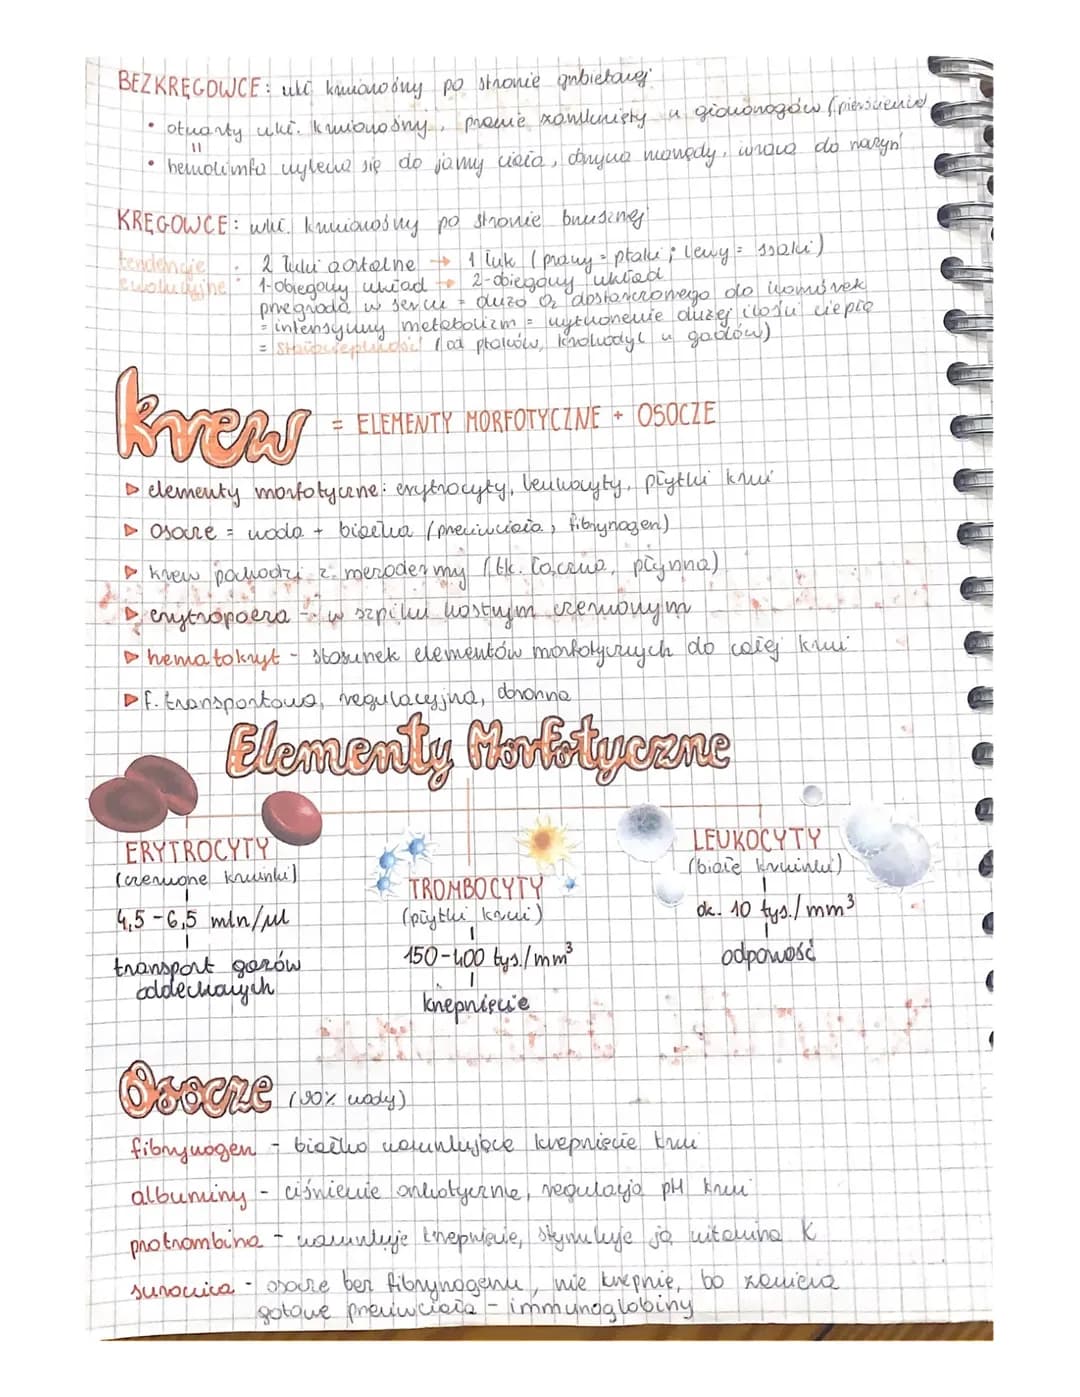 BEZKRĘGOWCE: ukł krwionośny po stronie grzbietowej
• otwarty ukł. krwionośny, prawie zamknięty u głowonogów (pierścienie)
=
• hemolimfa wylewa się do jamy ciała, omywa narządy, wraca do naczyń
KRĘGOWCE: ukł. krwionośny po stronie brzusznej
tendencje ewolucyjne
• 2 łuki aortalne → 1 łuk (prawy = ptaki; lewy = ssaki)
1-obiegowy układ → 2-obiegowy układ
przegroda w sercu = dużo O₂ dostarczonego do komórek
= intensywny metabolizm = wytworzenie dużej ilości ciepła
= stałocieplność (od ptaków, krokodyl u gadów)
krew = ELEMENTY MORFOTYCZNE + OSOCZE
▷ elementy morfotyczne: erytrocyty, leukocyty, płytki krwi
▷ osocze = woda + białka (przeciwciała, fibrynogen)
▷ krew pochodzi z mezodermy (tk. łączna, płynna)
▷ erytropoeza - w szpiku kostnym czerwonym
▷ hematokryt - stosunek elementów morfotycznych do całej krwi
▷ f. transportowa, regulacyjna, obronna
Elementy Morfotyczne
ERYTROCYTY
(czerwone krwinki)
4,5-6,5 mln/µl
transport gazów
oddechowych
TROMBOCYTY
(płytki krwi)
150-400 tys./mm³
krzepnięcie
LEUKOCYTY
(białe krwinki)
ok. 10 tys./mm³
odporność
Osocze (90% wody)
fibrynogen - białko warunkujące krzepnięcie krwi
albuminy - ciśnienie onkotyczne, regulacja pH krwi
protrombina - warunkuje krzepnięcie, stymuluje ją witamina K
surowica - osocze bez fibrynogenu, nie krzepnie, bo zawiera
gotowe przeciwciała - immunoglobiny